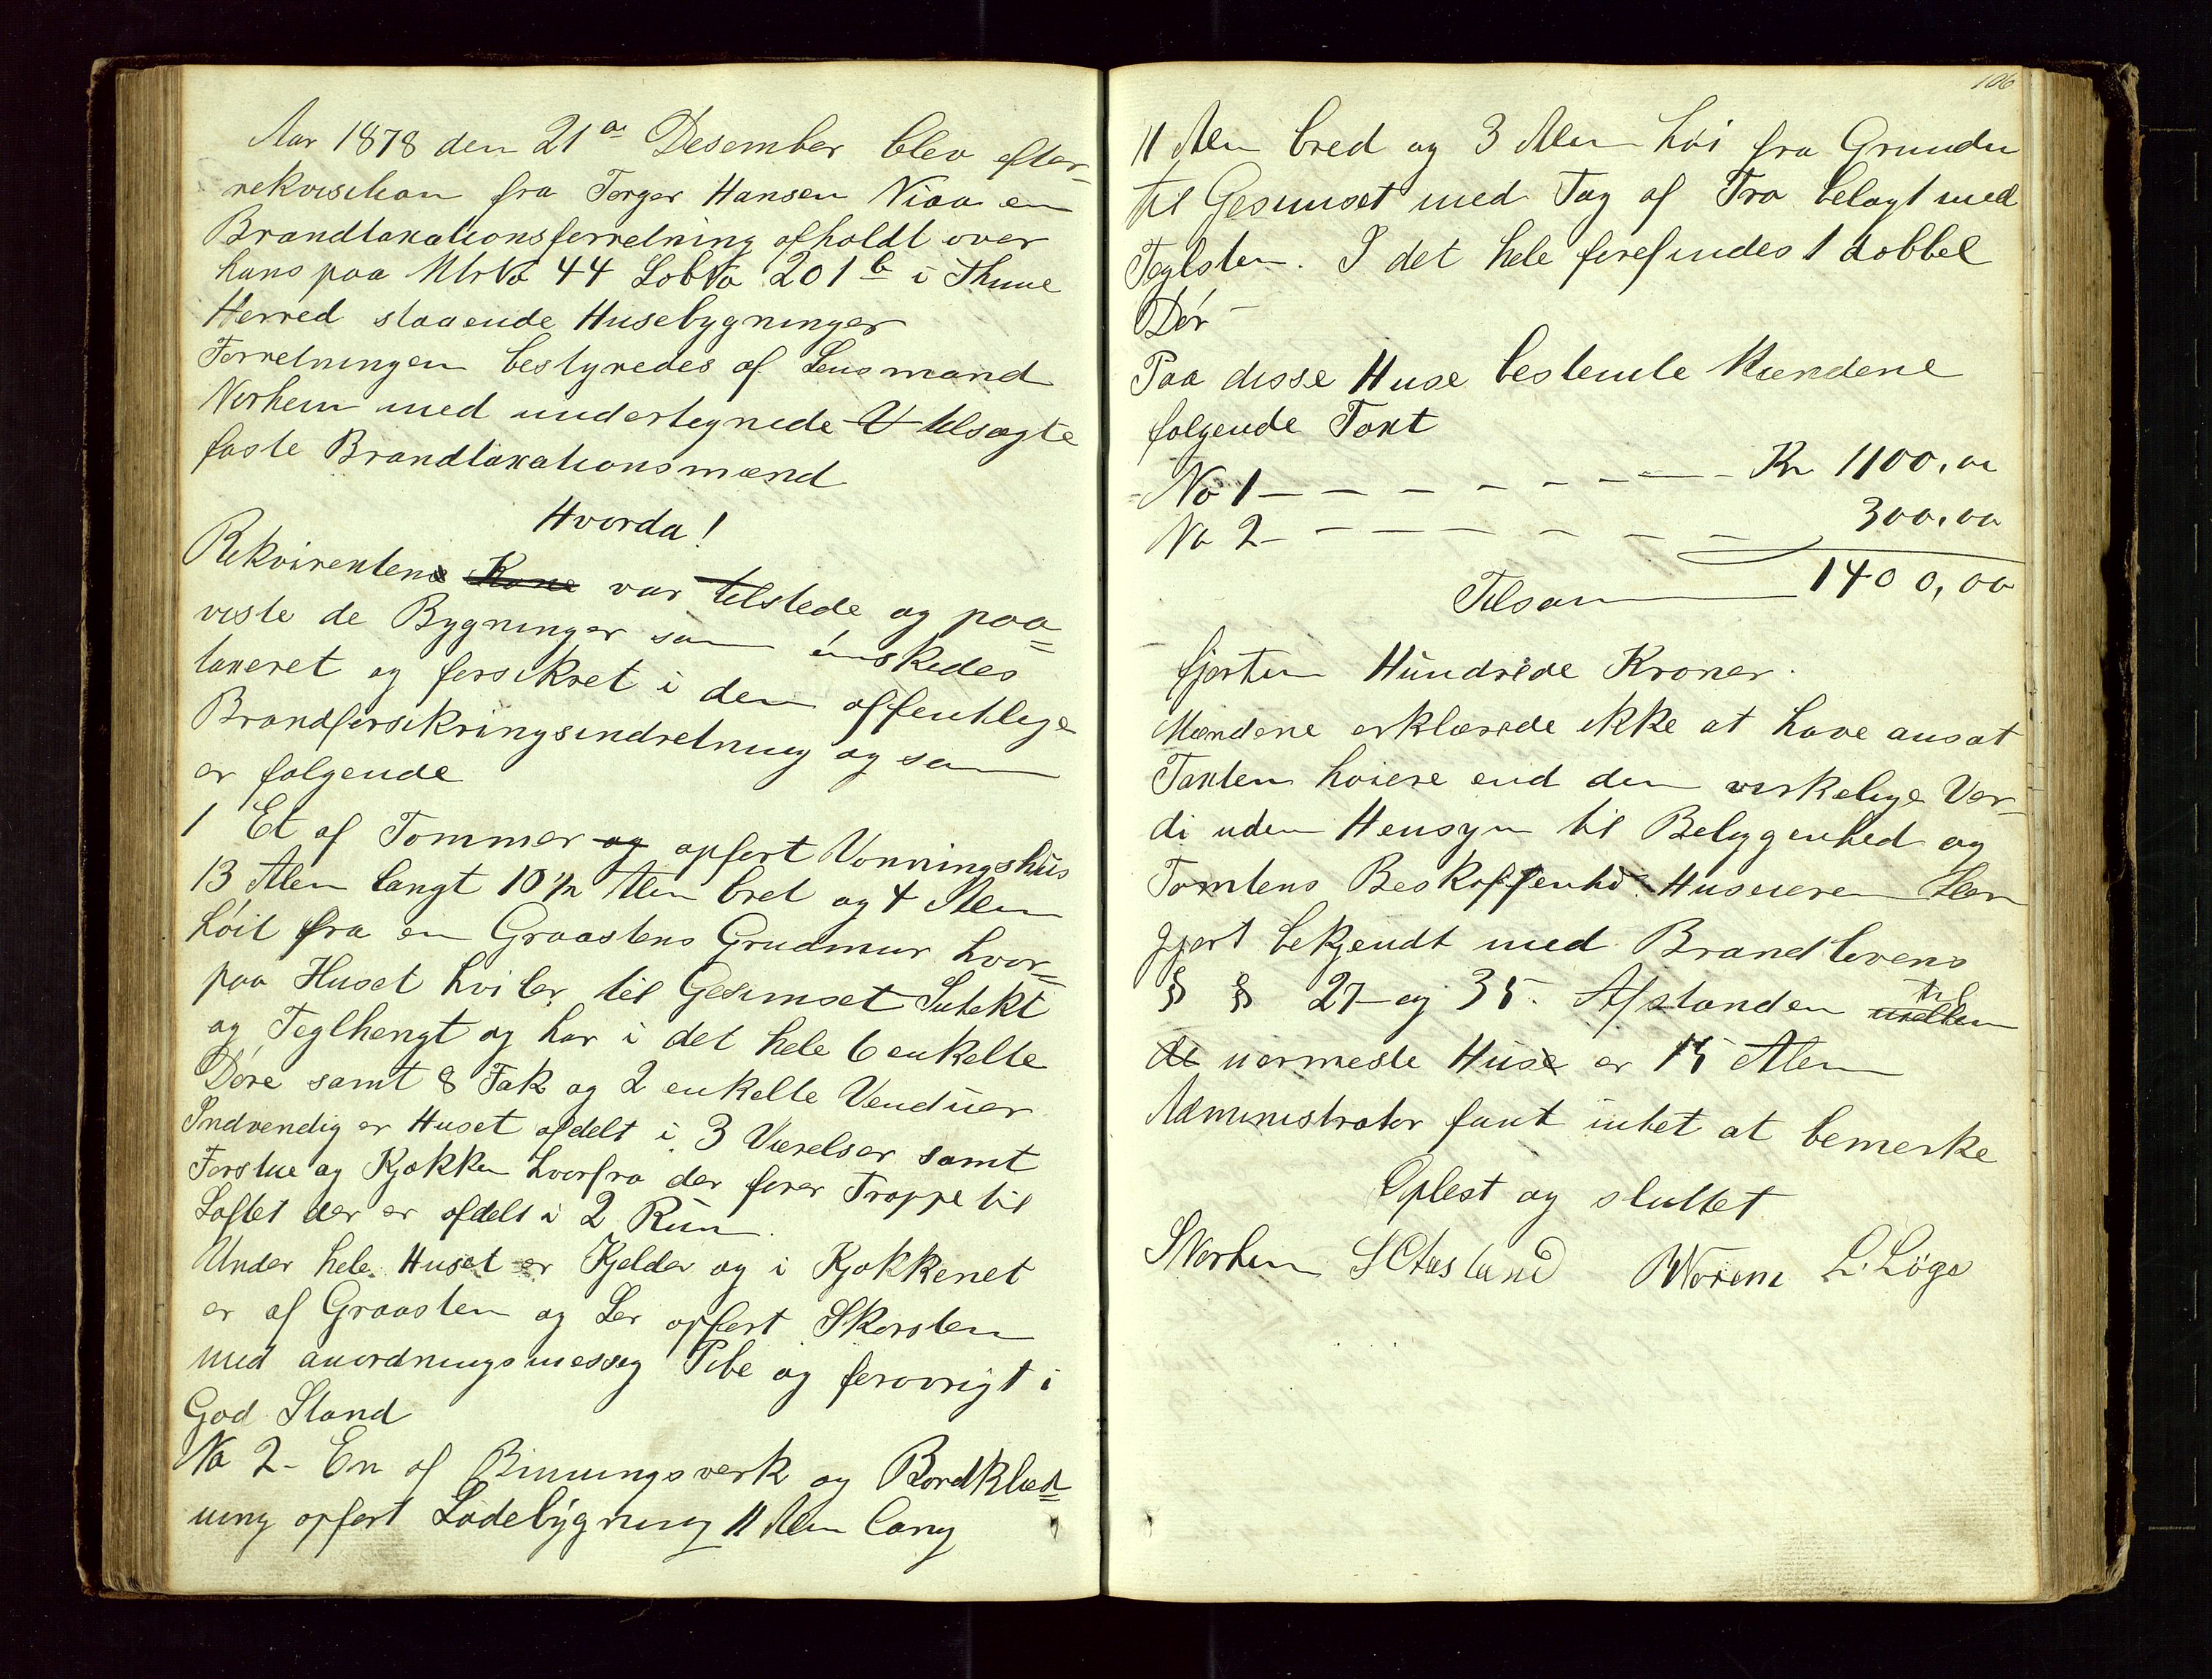 Aar 1878 den 21de Desember blev efter-
rekvisition fra Torger Hansen Niaa en
Brandtaxationsforretning afholdt over
hans paa MtrNo 44 LobNo 201b i Thime
Herred staaende Husebygninger
Forretningen bestyredes af Lensmand
Norhem med undertegnede tilsagte
faste Brandtaxationsmænd
Hvorda!
Rekvirenten Kone var tilstede og paa=
viste de Bygninger som ønskedes
taxeret og forsikret i den offentlige
Brandforsikringsindretning og som
er folgende
1 Et af Tommer og opfort Vonningshus
13 Alen langt 10 1/2 Alen bret og 4 Alen
høit fra en Graastens Grudmur hvor=
paa Huset hviler til Gesimset Sutekt
og Teglhengt og har i det hele 6 enkelte
Døre samt 8 Fak og 2 enkelte Venduer
Indvendig er Huset afdelt i 3 Værelser samt
Forstue og Kjøkken hvorfra der fører Trappe til
Loftet der er afdelt i 2 Rum.
Under hele Huset er Kjelder og i Kjøkkenet
er af Graasten og Ler opfort Skorsten
med anordningsmessig Pibe og forovrigt i
God Stand
No 2- En af Binningsverk og Bordklæd=
ning opfort Ladebygning 11 Alen lang
106
11 Alen bred og 3 Alen høi fra Grunden
til Gesimset med Tag af Træ belagt med
Teglsten. I det hele forefindes 1 dobbel
Dør
Paa disse Huse bestemte Mændene
folgende Taxt
No 1 - - - - - - - Kr 1100,00
No 2 - - - - - - - 300,00
Tilsam 1400,00
fjorten Hundrede Kroner.
Mændene erklærede ikke at have ansat
Taxten høiere end den virkelige Vær-
di uden Hensyn til Beliggenhed og
Tomtens Beskaffenhd Huseieren blev
gjort bekjendt med Brandlovens
§ § 27 og 35. Afstanden mellem til
de nærmeste Huse er 15 Alen
Administrator fant intet at bemerke
Oplest og sluttet
SNorhem Norem L. Löge